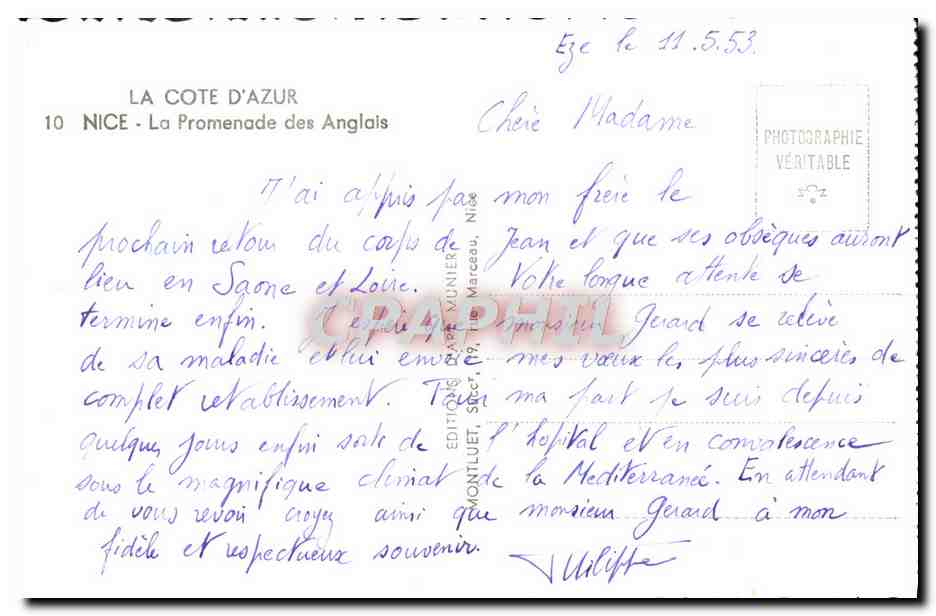 Eze le 11.5.53.
LA COTE D'AZUR
10 NICE - La Promenade des Anglais
Chère Madame
PHOTOGRAPHIE
VÉRITABLE
J'ai appris par mon frère le
prochain retour du corps de Jean et que ses obsèques auront
lieu en Saone et Loire. Votre longue attente se
termine enfin. J'espère que monsieur Gerard se relève
de sa maladie et lui envoie mes vœux les plus sincères de
complet retablissement. Pour ma part je suis depuis
quelques jours enfin sorti de l'hopital et en convalescence
sous le magnifique climat de la Mediterranée. En attendant
de vous revoir croyez ainsi que monsieur Gerard à mon
fidèle et respectueux souvenir.
Philippe
EDITIONS D'ART MUNIER
MONTLUET, Succr, 19, rue Marceau, Nice
CPAPHIL